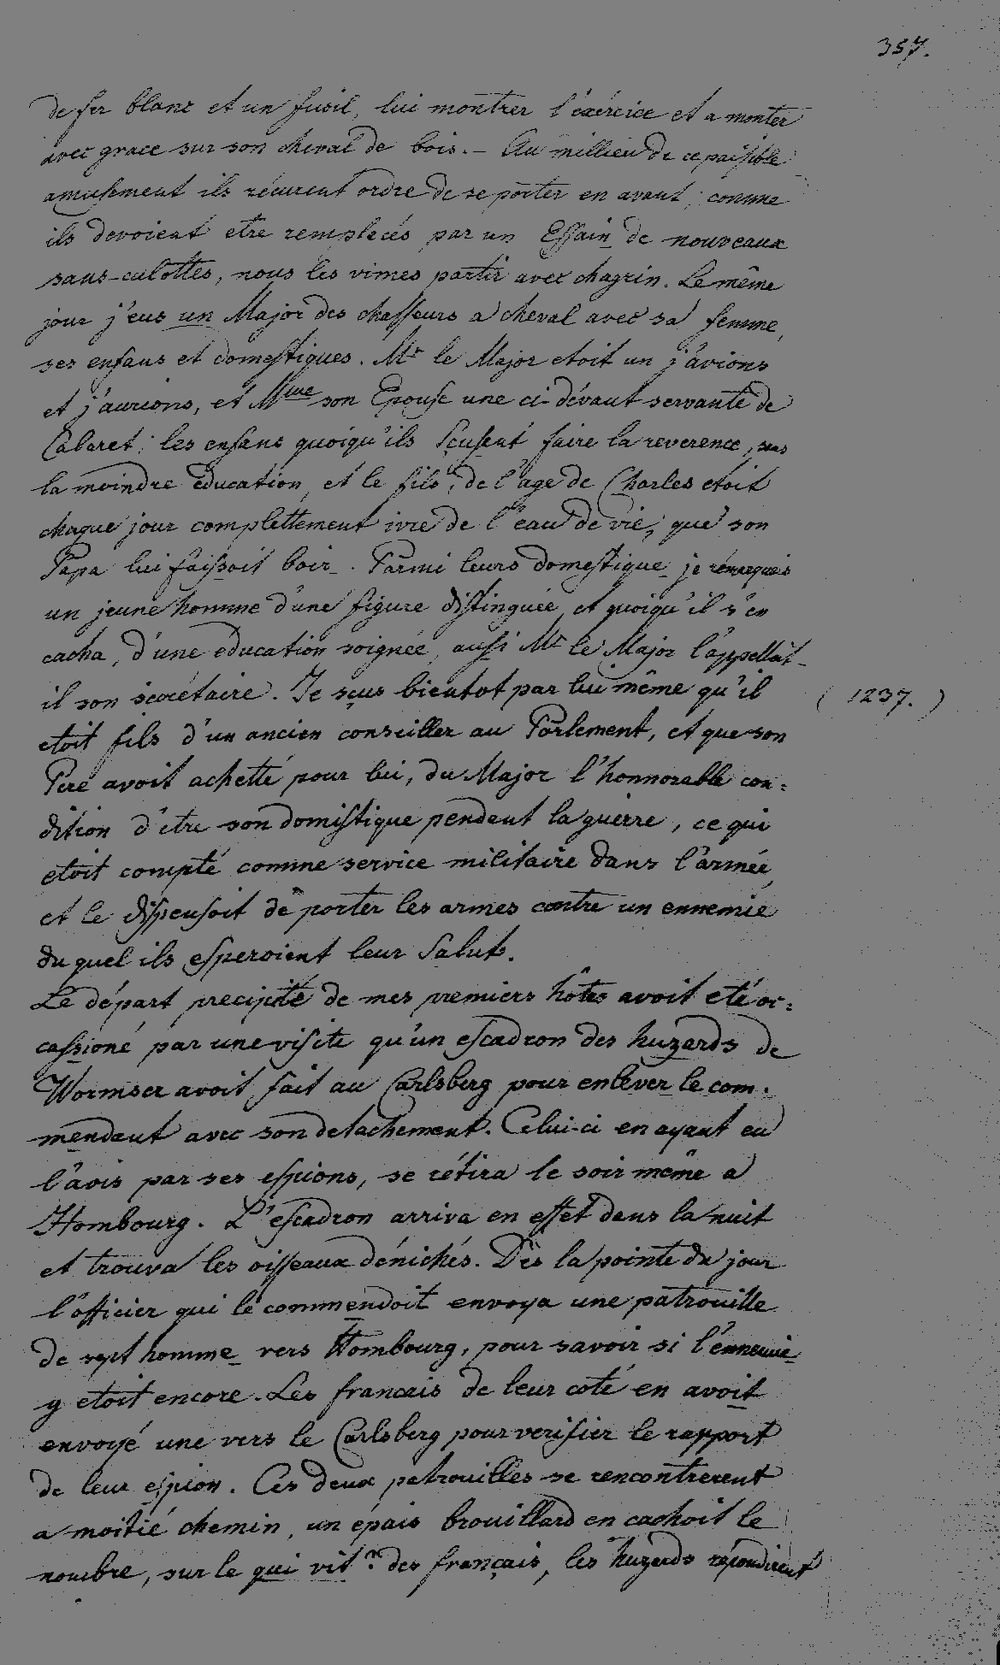 357.
de fer blanc et un fusil, lui montrer l'éxércice et a monter
avec grace sur son cheval de bois. – Au millieu de ce paisible
amusement ils récurent ordre de se porter en avant; comme
ils devoient etre remplecés par un Essain de nouveaux
sans-culottes, nous les vimes partir avec chagrin. Le même
jour j'eus un Major des chasseurs a cheval avec sa femme,
ses enfans et domestiques. Mr le Major etoit un j'avions
et j'aurions, et Mme son Epouse une ci-dévant servante de
Cabaret; les enfans quoiqu'ils scusent faire la reverence, sans
la moindre éducation, et le fils, de l'age de Charles etoit
chaque jour complettement ivre de l'eau de vie, que son
Papa lui faissoit boir. Parmi leurs domestique je rémarquois
un jeune homme d'une figure distinguée, et quoiqu'il s'en
cacha, d'une education soignée, aussi Mr le Major l'appelloit-
il son sécrétaire. Je sçus bientot par lui même qu'il
( 1237. )
etoit fils d'un ancien conseiller au Parlement, et que son
Pere avoit achetté pour lui, du Major l'honnorable con=
dition d'etre son domistique pendent la guerre, ce qui
etoit compté comme service militaire dans l'armée,
et le dispensoit de porter les armes contre un ennemie
du quel ils esperoient leur Salut.
Le départ precipité de mes premiers hôtes avoit eté oc=
cassioné par une visite qu'un escadron des huzards de
Wormser avoit fait au Carlsberg pour enléver le com.
mendent avec son detachement. Celui-ci en ayant eu
l'avis par ses espions, se rétira le soir même a
Hombourg. L'escadron arriva en effet dans la nuit
et trouva les oisseaux dénichés. Dès la pointe du jour
l'officier qui le commendoit envoya une patrouille
de sept homme vers Hombourg, pour savoir si l'ennemie
y etoit encore. Les francais de leur coté en avoit
envoyé une vers le Carlsberg pour verifier le rapport
de leur espion. Ces deux patrouilles se rencontrerent
a moitié chemin, un épais brouillard en cachoit le
nombre, sur le qui vit? des français, les huzards répondirent